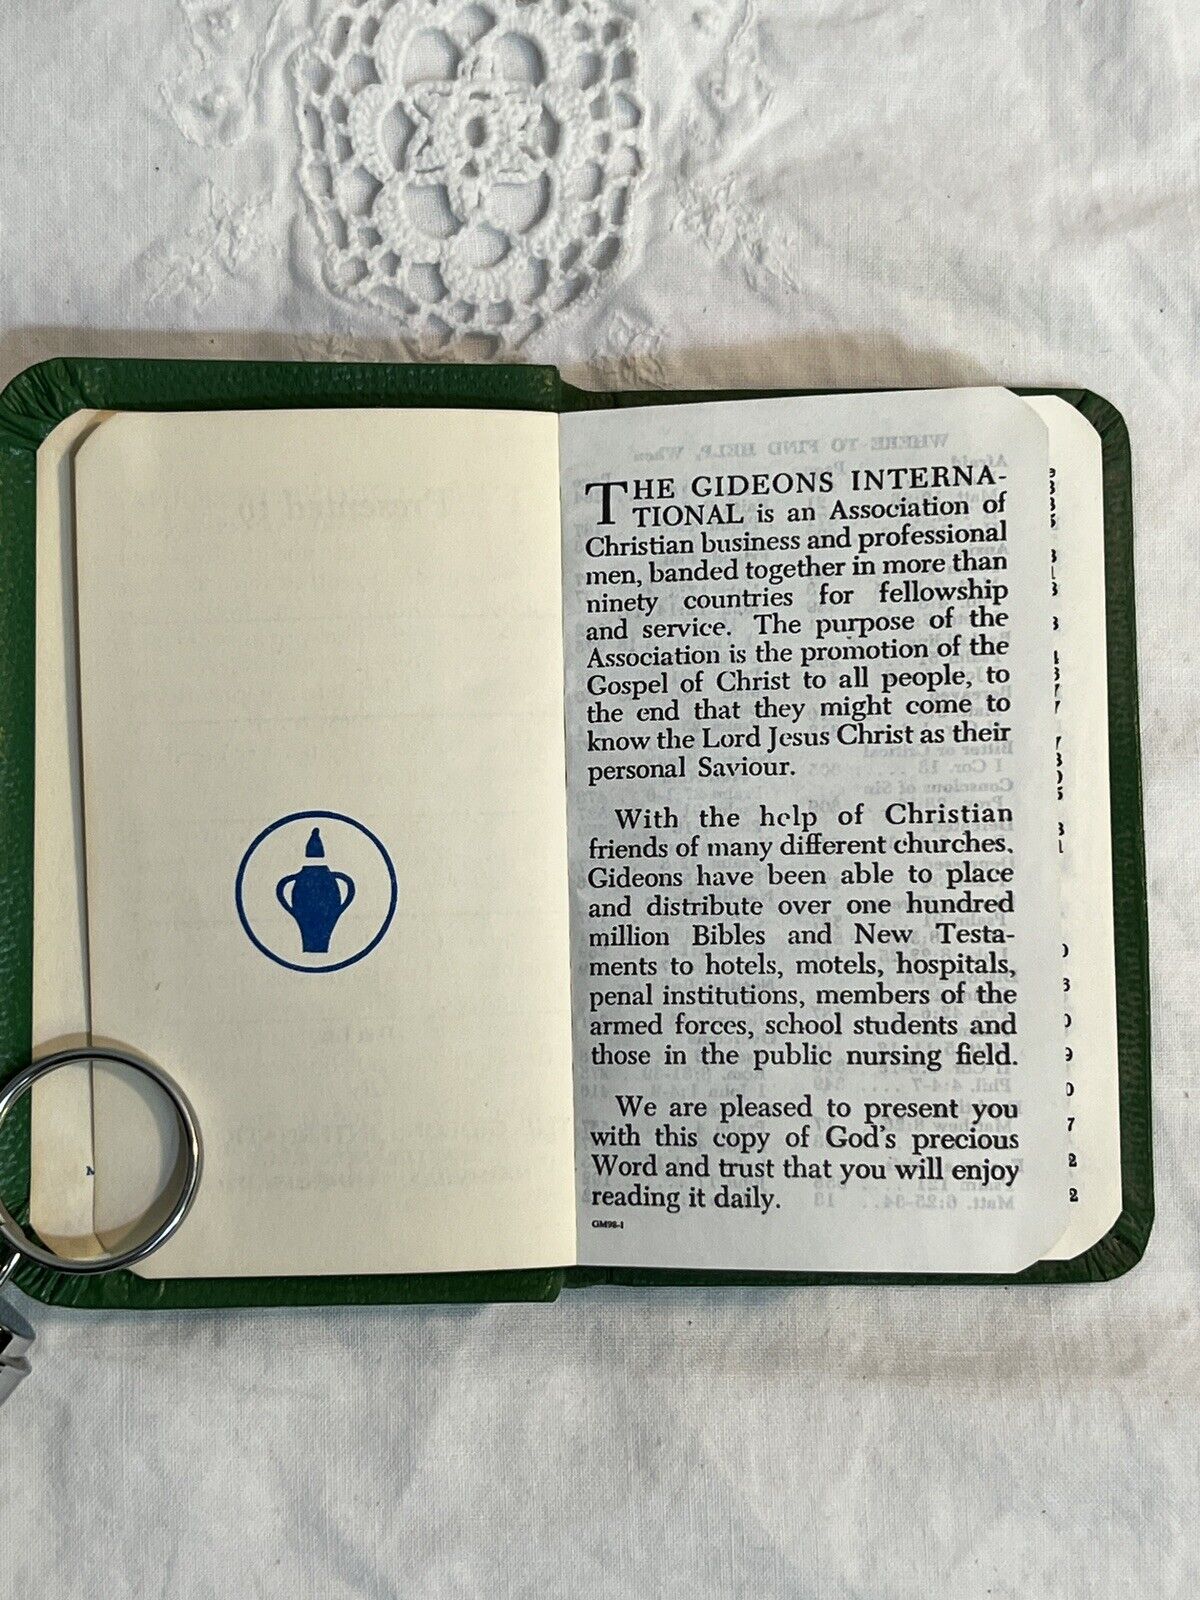 THE GIDEONS INTERNA-
TIONAL is an Association of
Christian business and professional
men, banded together in more than
ninety countries for fellowship
and service. The purpose of the
Association is the promotion of the
Gospel of Christ to all people, to
the end that they might come to
know the Lord Jesus Christ as their
personal Saviour.
With the help of Christian
friends of many different churches,
Gideons have been able to place
and distribute over one hundred
million Bibles and New Testa-
ments to hotels, motels, hospitals,
penal institutions, members of the
armed forces, school students and
those in the public nursing field.
We are pleased to present you
with this copy of God's precious
Word and trust that you will enjoy
reading it daily.
GM98-1